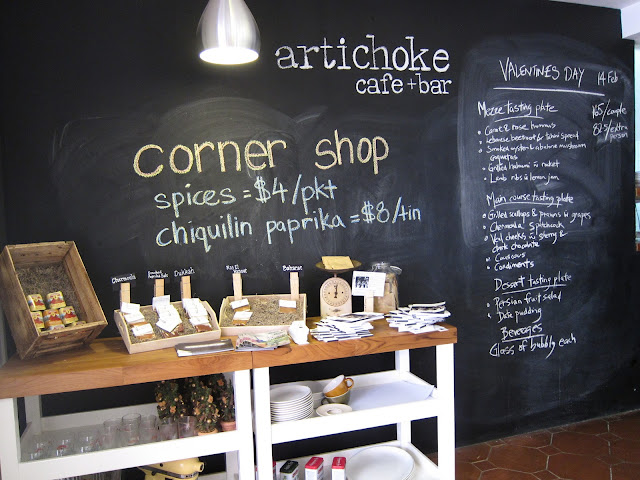 artichoke
cafe+bar
corner shop
spices = $4/pkt
chiquilin paprika = $8/tin
VALENTINES DAY 14 Feb
165/couple
82.5/extra person
Mezze tasting plate
• Carrot & rose hummus
• Lebanese beetroot & tahini spread
• Smoked oyster & abalone mushroom
croquettas
• Grilled haloumi w rocket
• Lamb ribs w lemon jam
Main course tasting plate
• Grilled scallops & prawns w grapes
• Chermoula Spatchcock
• Veal cheeks w sherry &
dark chocolate
• Couscous
• Condiments
Dessert tasting plate
• Persian fruit salad
• Date pudding
Beverages
Glass of bubbly each
Chermoula
Dukkah
Ras El
Baharat